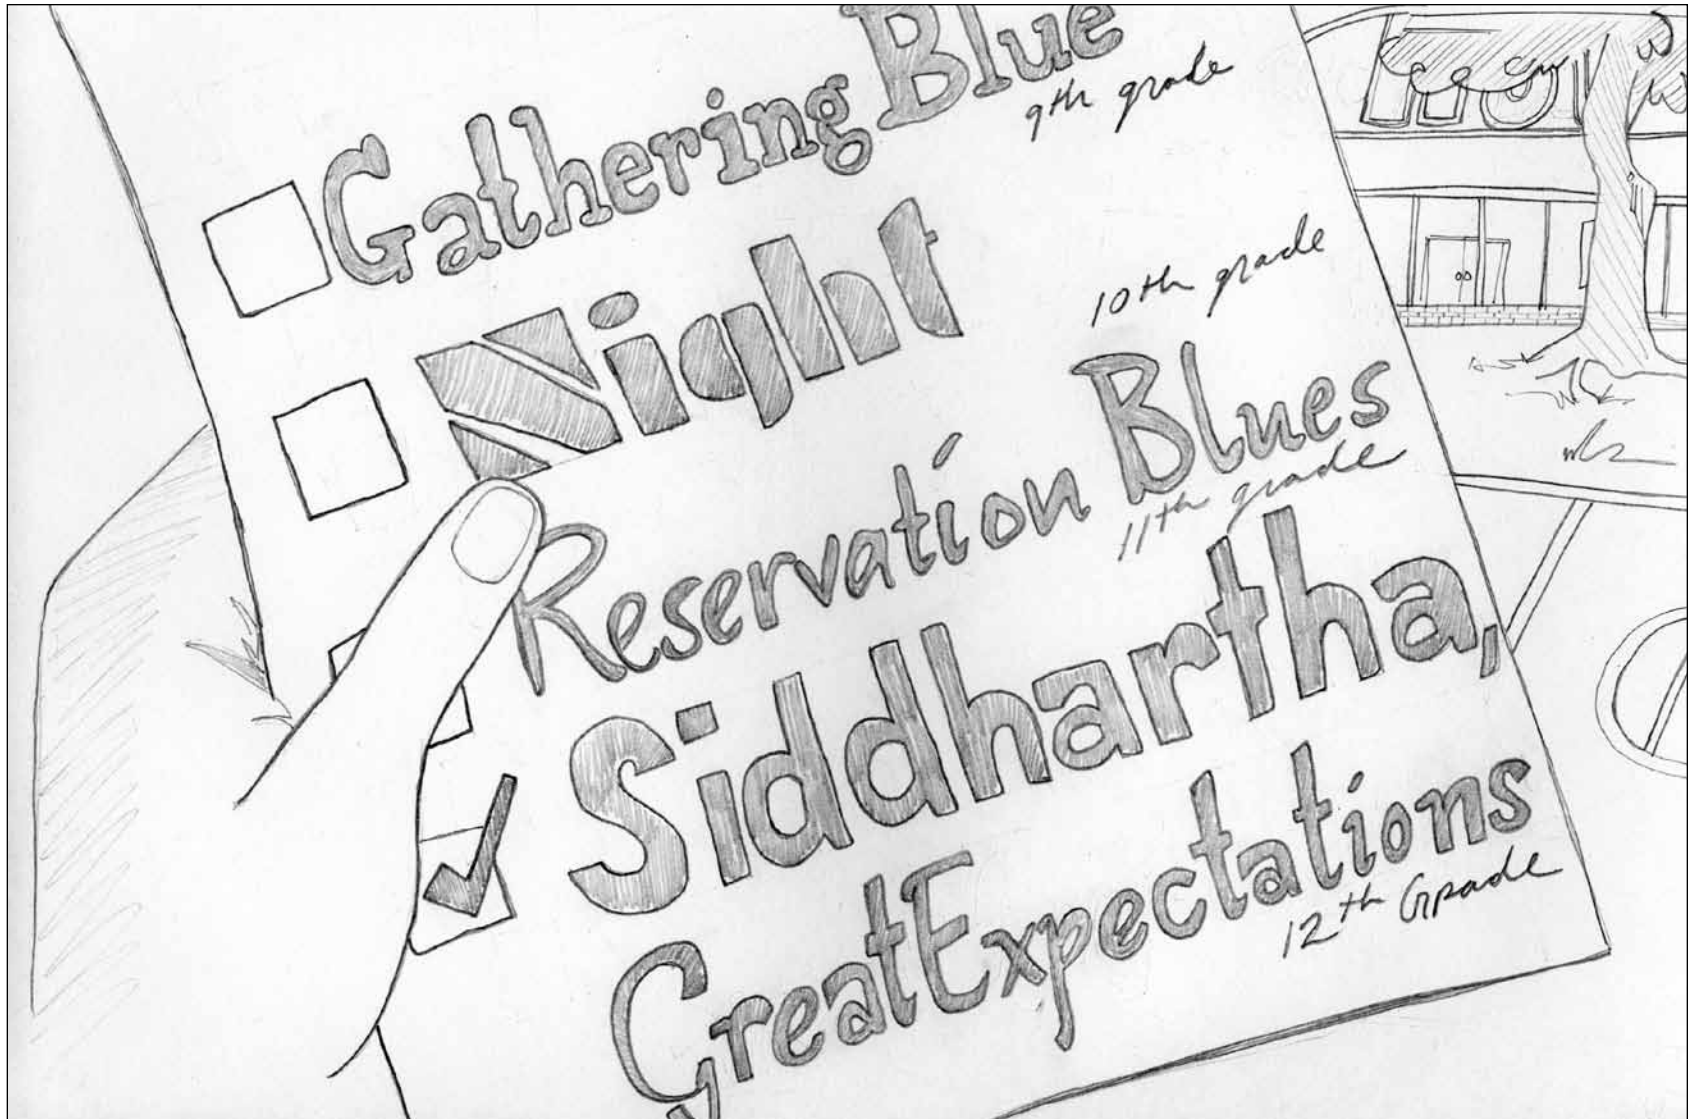 Gathering Blue
9th grade
Night
10th grade
Reservation Blues
11th grade
Siddhartha,
Great Expectations
12th Grade